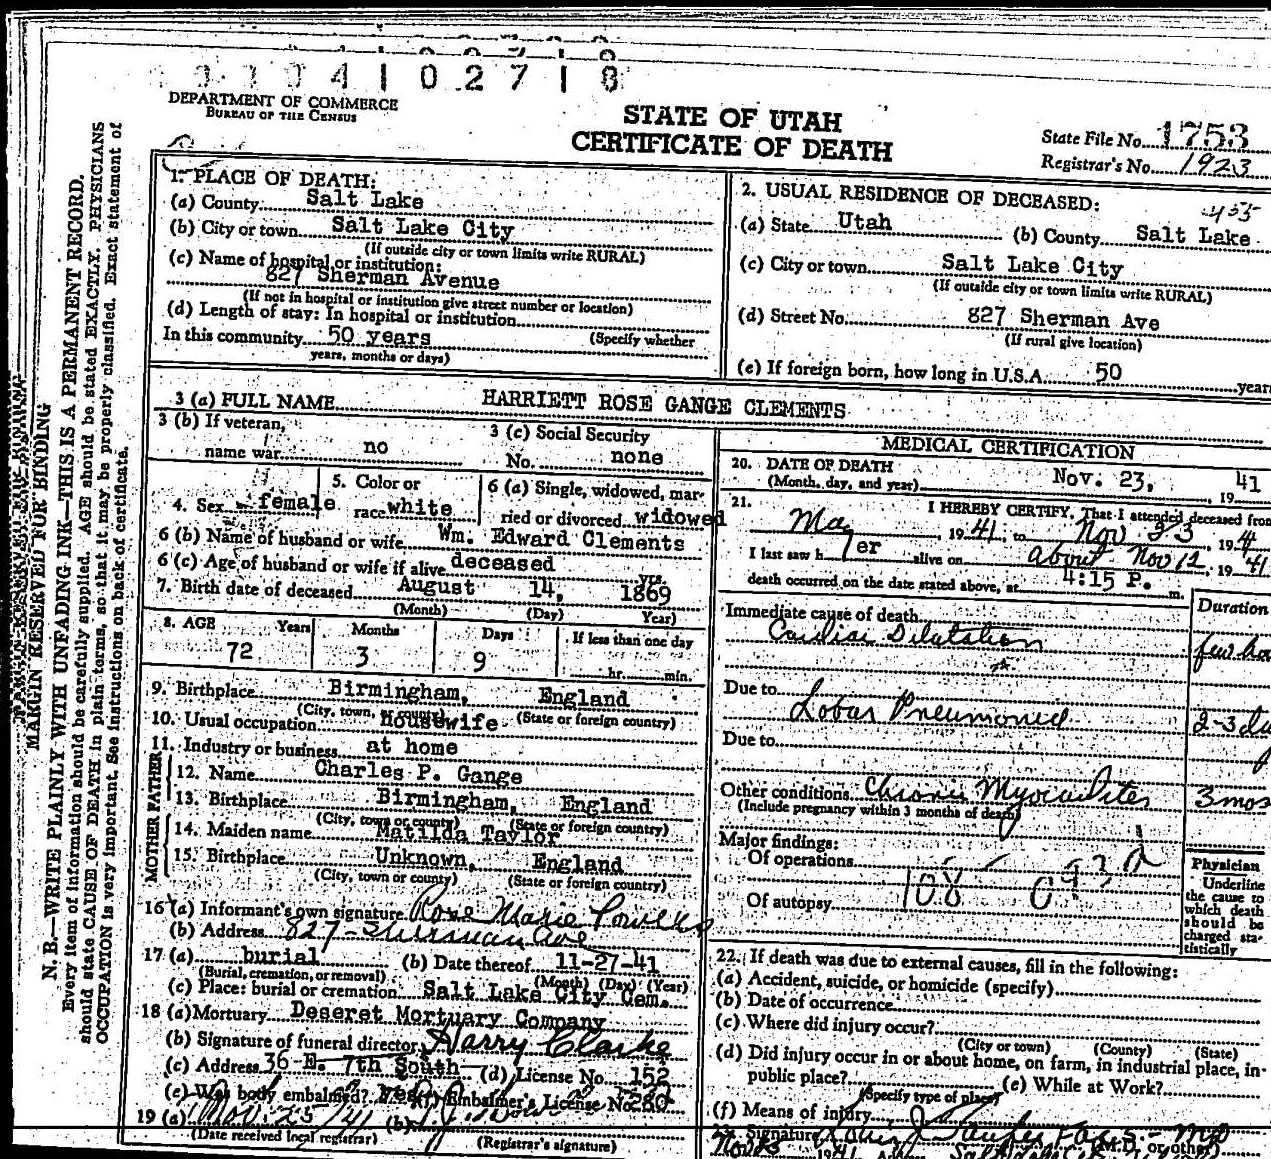 DEPARTMENT OF COMMERCE
BUREAU OF THE CENSUS
STATE OF UTAH
CERTIFICATE OF DEATH
State File No. 1753
Registrar's No. 1923
MARGIN RESERVED FOR BINDING
N. B.—WRITE PLAINLY WITH UNFADING INK—THIS IS A PERMANENT RECORD.
Every item of information should be carefully supplied. AGE should be stated EXACTLY. PHYSICIANS
should state CAUSE OF DEATH in plain terms, so that it may be properly classified. Exact statement of
OCCUPATION is very important. See instructions on back of certificate.
1. PLACE OF DEATH:
(a) County Salt Lake
(b) City or town Salt Lake City
(If outside city or town limits write RURAL)
(c) Name of hospital or institution:
827 Sherman Avenue
(If not in hospital or institution give street number or location)
(d) Length of stay: In hospital or institution
In this community 50 years (Specify whether
years, months or days)
2. USUAL RESIDENCE OF DECEASED:
(a) State Utah (b) County Salt Lake
(c) City or town Salt Lake City
(If outside city or town limits write RURAL)
(d) Street No. 827 Sherman Ave
(If rural give location)
(e) If foreign born, how long in U.S.A. 50 years
3 (a) FULL NAME HARRIETT ROSE GANGE CLEMENTS
3 (b) If veteran, name war no
3 (c) Social Security No. none
4. Sex female
5. Color or race white
6 (a) Single, widowed, married or divorced widowed
6 (b) Name of husband or wife Wm. Edward Clements
6 (c) Age of husband or wife if alive deceased yrs.
7. Birth date of deceased August 14, 1869
(Month) (Day) Year)
8. AGE Years Months Days If less than one day
72 3 9 hr. min.
9. Birthplace Birmingham, England
(City, town, or county) (State or foreign country)
10. Usual occupation housewife
11. Industry or business at home
FATHER
12. Name Charles P. Gange
13. Birthplace Birmingham, England
(City, town or county) (State or foreign country)
MOTHER
14. Maiden name Matilda Taylor
15. Birthplace Unknown, England
(City, town or county) (State or foreign country)
16 (a) Informant's own signature Rose Marie
(b) Address 827 - Sherman Ave
17 (a) burial (b) Date thereof 11-27-41
(Burial, cremation, or removal) (Month) (Day) (Year)
(c) Place: burial or cremation Salt Lake City Cem.
18 (a) Mortuary Deseret Mortuary Company
(b) Signature of funeral director Harry Clarke
(c) Address 36 E. 7th South (d) License No. 152
(e) Was body embalmed? Yes (f) Embalmer's License No. 280
19 (a) Nov. 25/41 (b)
(Date received local registrar) (Registrar's signature)
MEDICAL CERTIFICATION
20. DATE OF DEATH
(Month, day, and year) Nov. 23, 1941
21. I HEREBY CERTIFY, That I attended deceased from
May, 1941, to Nov 23, 194
I last saw her alive on about Nov 12, 1941
death occurred on the date stated above, at 4:15 P. m.
Duration
Immediate cause of death
Cardiac Dilatation few ho
Due to Lobar Pneumonia 2-3 da
Due to
Other conditions Chronic Myocarditis 3 mos
(Include pregnancy within 3 months of death)
Major findings:
Of operations
Of autopsy
108
Physician
Underline
the cause to
which death
should be
charged sta-
tistically
22. If death was due to external causes, fill in the following:
(a) Accident, suicide, or homicide (specify)
(b) Date of occurrence
(c) Where did injury occur?
(City or town) (County) (State)
(d) Did injury occur in or about home, on farm, in industrial place, in-
public place? (e) While at Work?
(Specify type of place)
(f) Means of injury
23. Signature
(M.D. or other)